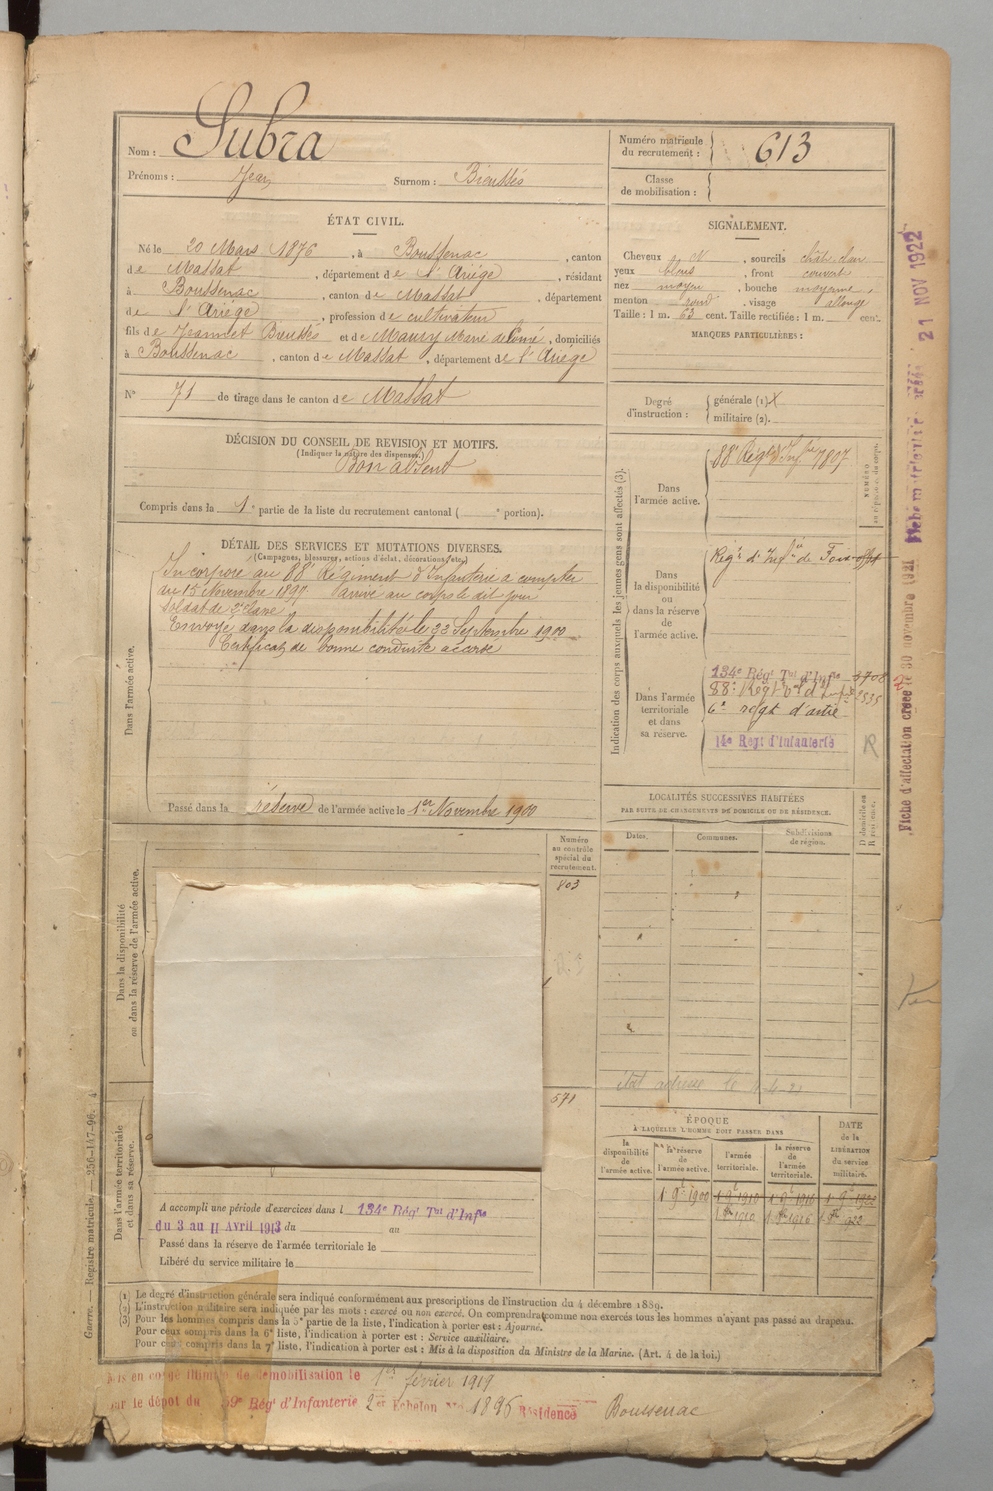 Nom : Subra
Prénoms : Jean Surnom : Bieussés
Numéro matricule du recrutement : 613
Classe de mobilisation :
ÉTAT CIVIL.
Né le 20 Mars 1876, à Boussenac, canton
de Massat, département de l'Ariège, résidant
à Boussenac, canton de Massat, département
de l'Ariège, profession de cultivateur
fils de Jeannet Bieussés et de Maury Marie, domiciliés
à Boussenac, canton de Massat, département de l'Ariège
N° 71 de tirage dans le canton de Massat
SIGNALEMENT.
Cheveux N, sourcils chât. clair
yeux bleus, front couvert
nez moyen, bouche moyenne,
menton rond, visage allongé
Taille : 1 m. 63 cent. Taille rectifiée : 1 m. cent.
MARQUES PARTICULIÈRES :
Degré d'instruction : générale (1) X
militaire (2).
DÉCISION DU CONSEIL DE REVISION ET MOTIFS.
(Indiquer la nature des dispenses.)
Bon absent
Compris dans la 1e partie de la liste du recrutement cantonal ( e portion).
DÉTAIL DES SERVICES ET MUTATIONS DIVERSES.
(Campagnes, blessures, actions d'éclat, décorations, etc.)
Dans l'armée active.
Incorporé au 88e Régiment d'Infanterie à compter
du 15 Novembre 1897. Arrivé au corps le dit jour
Soldat de 2e classe
Envoyé dans la disponibilité le 22 Septembre 1900
Certificat de bonne conduite accordé
Passé dans la réserve de l'armée active le 1er Novembre 1900
Indication des corps auxquels les jeunes gens sont affectés (3).
NUMÉRO
Dans l'armée active.
88e Régt d'Infie 7807
Dans la disponibilité ou dans la réserve de l'armée active.
Régt d'Infie de Foix
Dans l'armée territoriale et dans sa réserve.
134e Régt Tal d'Infie 3708
88e Régt tal d'Infie 2535
6e regt d'artie
14e Regt d'Infanterie R
LOCALITÉS SUCCESSIVES HABITÉES
PAR SUITE DE CHANGEMENTS DE DOMICILE OU DE RÉSIDENCE.
Dates. Communes. Subdivisions de région. D domicile ou R résidence.
Dans la disponibilité ou dans la réserve de l'armée active.
Numéro au contrôle spécial du recrutement.
803
571
état adressé le
ÉPOQUE
À LAQUELLE L'HOMME DOIT PASSER DANS
la disponibilité de l'armée active. la réserve de l'armée active. l'armée territoriale. la réserve de l'armée territoriale.
DATE de la LIBÉRATION du service militaire.
1 9bre 1900 1 9bre 1910 1 9bre 1916 1 9bre 1922
1 8bre 1910 1 8bre 1916 1 8bre 922
Dans l'armée territoriale et dans sa réserve.
A accompli une période d'exercices dans l 134e Régt Tal d'Infie
du 3 au 11 Avril 1913 du au
Passé dans la réserve de l'armée territoriale le
Libéré du service militaire le
(1) Le degré d'instruction générale sera indiqué conformément aux prescriptions de l'instruction du 4 décembre 1889.
(2) L'instruction militaire sera indiquée par les mots : exercé ou non exercé. On comprendra comme non exercés tous les hommes n'ayant pas passé au drapeau.
(3) Pour les hommes compris dans la 5e partie de la liste, l'indication à porter est : Ajourné.
Pour ceux compris dans la 6e liste, l'indication à porter est : Service auxiliaire.
Pour ceux compris dans la 7e liste, l'indication à porter est : Mis à la disposition du Ministre de la Marine. (Art. 4 de la loi.)
Mis en congé illimité de démobilisation le 1er février 1919
par le dépôt du 59e Régt d'Infanterie 2er Echelon No 1896 Résidence Boussenac
Guerre. — Registre matricule. — 256-147-96. 4
Fiche d'affectation créée le 30 novembre 1921
Fiche matricule créée 21 NOV 1922